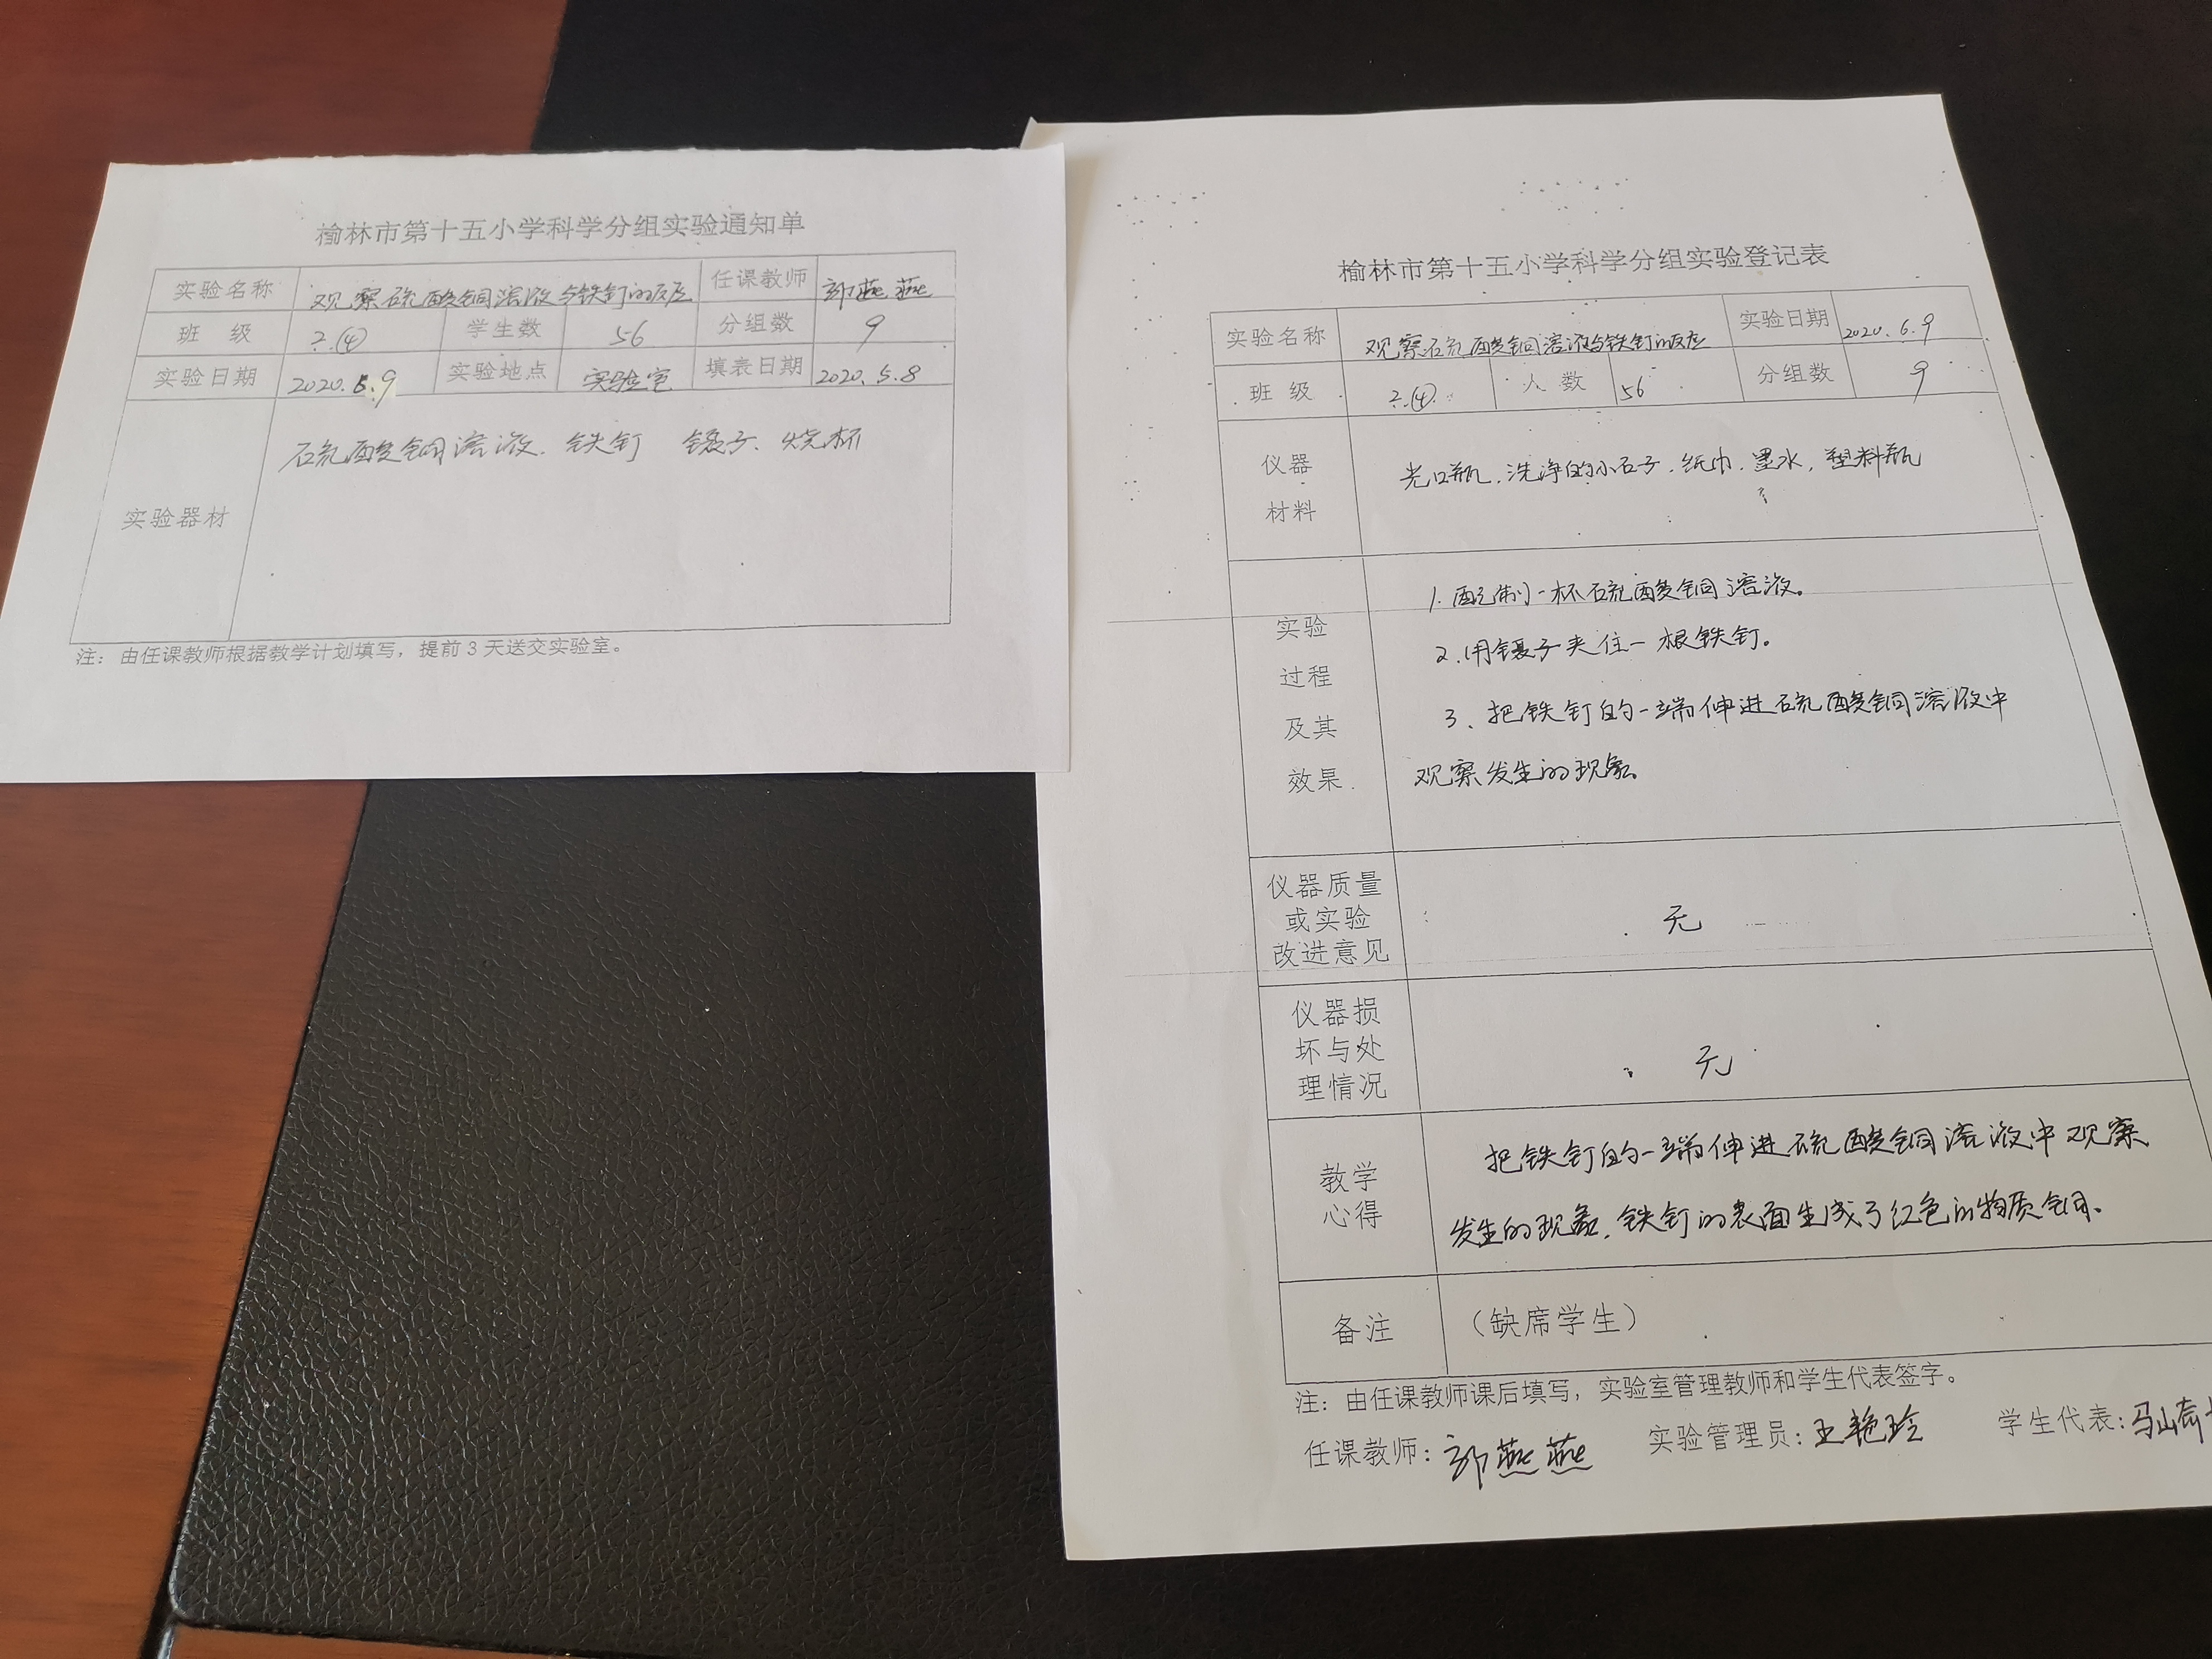 榆林市第十五小学科学分组实验通知单
实验名称 观察硫酸铜溶液与铁钉的反应 任课教师 郭燕燕
班 级 二.(4) 学生数 56 分组数 9
实验日期 2020.6.9 实验地点 实验室 填表日期 2020.5.8
实验器材 硫酸铜溶液. 铁钉 镊子、烧杯
注：由任课教师根据教学计划填写，提前3天送交实验室。
榆林市第十五小学科学分组实验登记表
实验名称 观察硫酸铜溶液与铁钉的反应 实验日期 2020.6.9
班 级 二.(4) 人 数 56 分组数 9
仪器
材料
光口瓶.洗净的小石子.纸巾.墨水,塑料瓶
实验
过程
及其
效果
1.配制一杯硫酸铜溶液。
2.用镊子夹住一根铁钉。
3、把铁钉的一端伸进硫酸铜溶液中
观察发生的现象。
仪器质量
或实验
改进意见
无
仪器损
坏与处
理情况
无
教学
心得
把铁钉的一端伸进硫酸铜溶液中观察
发生的现象.铁钉的表面生成了红色的物质铜。
备注 （缺席学生）
注：由任课教师课后填写，实验室管理教师和学生代表签字。
任课教师：郭燕燕 实验管理员：王艳玲 学生代表: